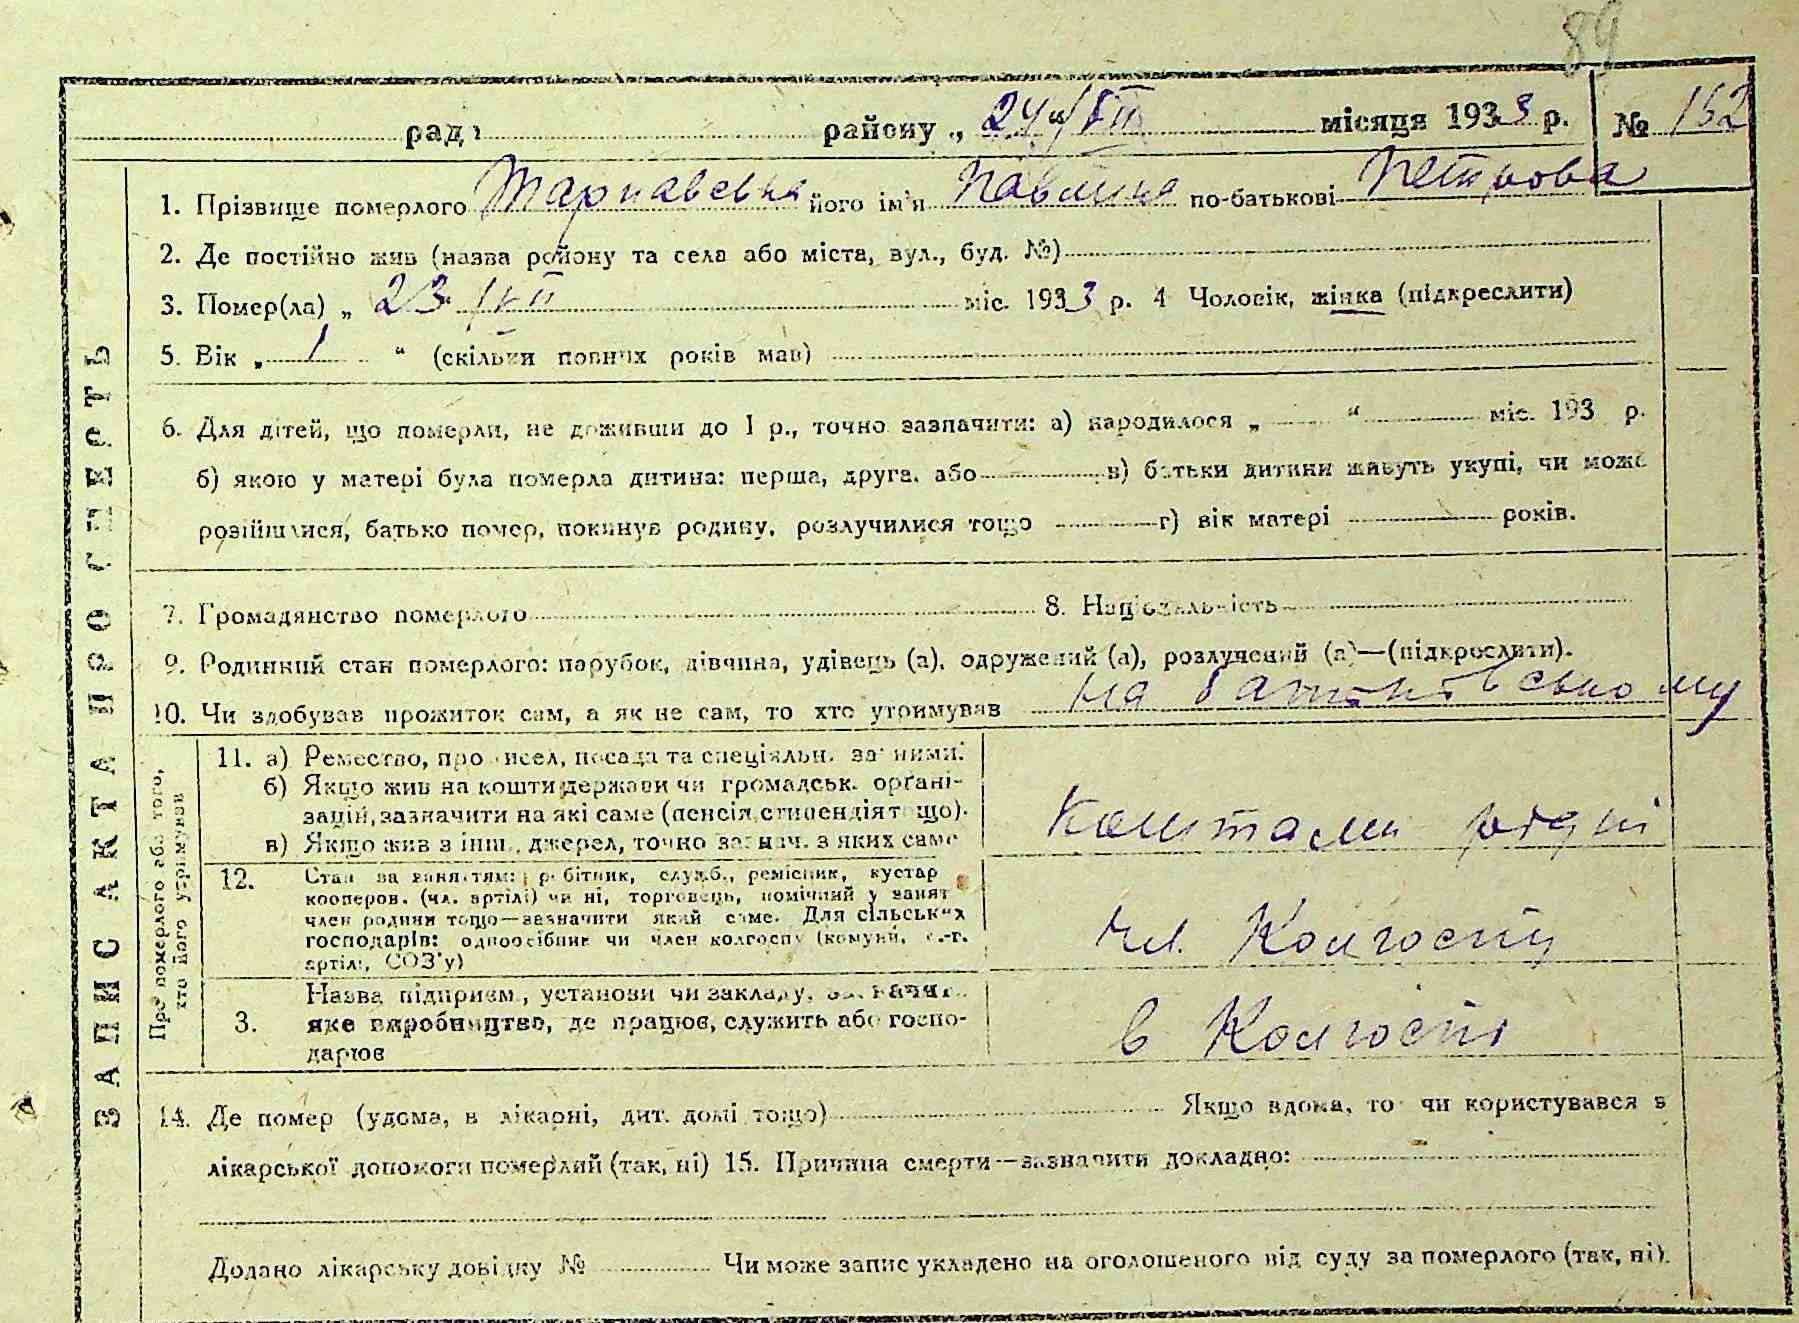 89
ради району „ 24 “ / VII місяця 1933 р. № 152
1. Прізвище померлого Тарнавська його ім'я Павліна по-батькові Петрова
2. Де постійно жив (назва району та села або міста, вул., буд. №)
3. Помер(ла) „ 23 “ / VII міс. 1933 р. 4 Чоловік, жінка (підкреслити)
5. Вік „ 1 “ (скільки повних років мав)
6. Для дітей, що померли, не доживши до 1 р., точно зазначити: а) народилося „ “ міс. 193 р.
б) якою у матері була померла дитина: перша, друга, або в) батьки дитини живуть укупі, чи може
розійшлися, батько помер, покинув родину, розлучилися тощо г) вік матері років.
7. Громадянство померлого 8. Національність
9. Родинний стан померлого: парубок, дівчина, удівець (а), одружений (а), розлучений (а)—(підкреслити).
10. Чи здобував прожиток сам, а як не сам, то хто утримував на батьковському
ЗАПИС АКТА ПРО СМЕРТЬ
Про померлого або того,
хто його утримував
11. а) Ремество, промисел, посада та спеціяльн. за ними:
б) Якщо жив на кошти держави чи громадськ. орґані-
зацій, зазначити на які саме (пенсія, стипендія тощо).
в) Якщо жив з інш. джерел, точно зазнач. з яких саме
коштами рідні
12. Стан за заняттям: робітник, служб., ремісник, кустар
кооперов. (чл. артілі) чи ні, торговець, помічний у занят
член родини тощо—зазначити який саме. Для сільських
господарів: одноосібник чи член колгоспу (комуни, с.-г.
артілі, СОЗ'у)
чл. Колгоспу
Назва підприєм., установи чи закладу, зазначит.
3. яке виробництво, де працює, служить або госпо-
дарює
в Колгоспі
14. Де помер (удома, в лікарні, дит. домі тощо) Якщо вдома, то чи користувався з
лікарської допомоги померлий (так, ні) 15. Причина смерти—зазначити докладно:
Додано лікарську довідку № Чи може запис укладено на оголошеного від суду за померлого (так, ні).